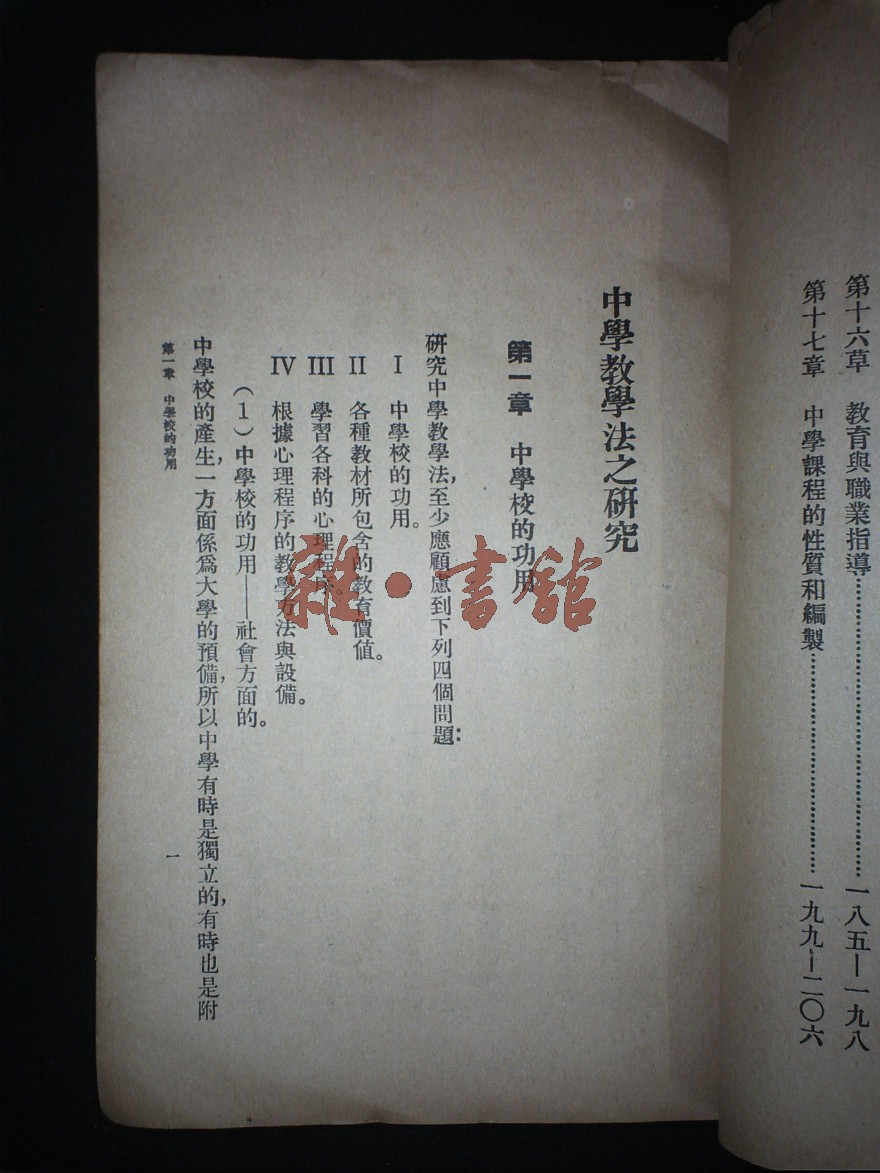 第十六草　教育與職業指導……………………………一八五—一九八
第十七章　中學課程的性質和編製……………………一九九—二〇六
中學教學法之研究
第一章　中學校的功用
研究中學教學法，至少應顧慮到下列四個問題：
I　中學校的功用。
II　各種教材所包含的教育價值。
III　學習各科的心理程序。
IV　根據心理程序的教學方法與設備。
（1）中學校的功用——社會方面的。
中學校的產生，一方面係爲大學的預備，所以中學有時是獨立的，有時也是附
第一章　中學校的功用
一
雜·書館